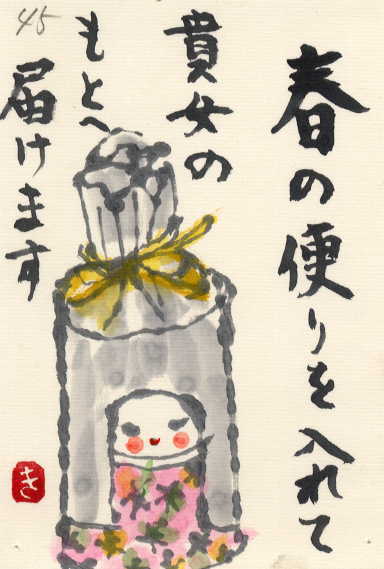 春の便りを入れて
貴女の
もとへ
届けます
45
き